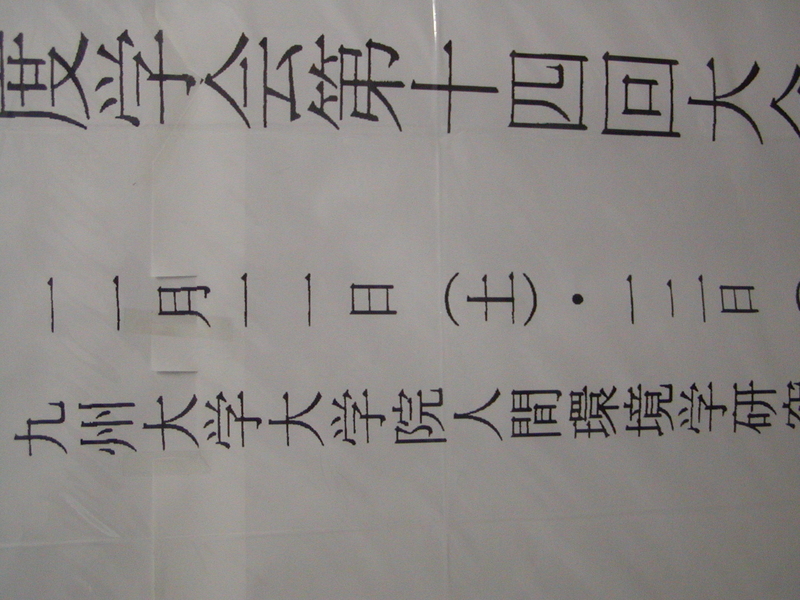 度学会第十四回大会
一一月一一日(土)・一二日(
九州大学大学院人間環境学研究